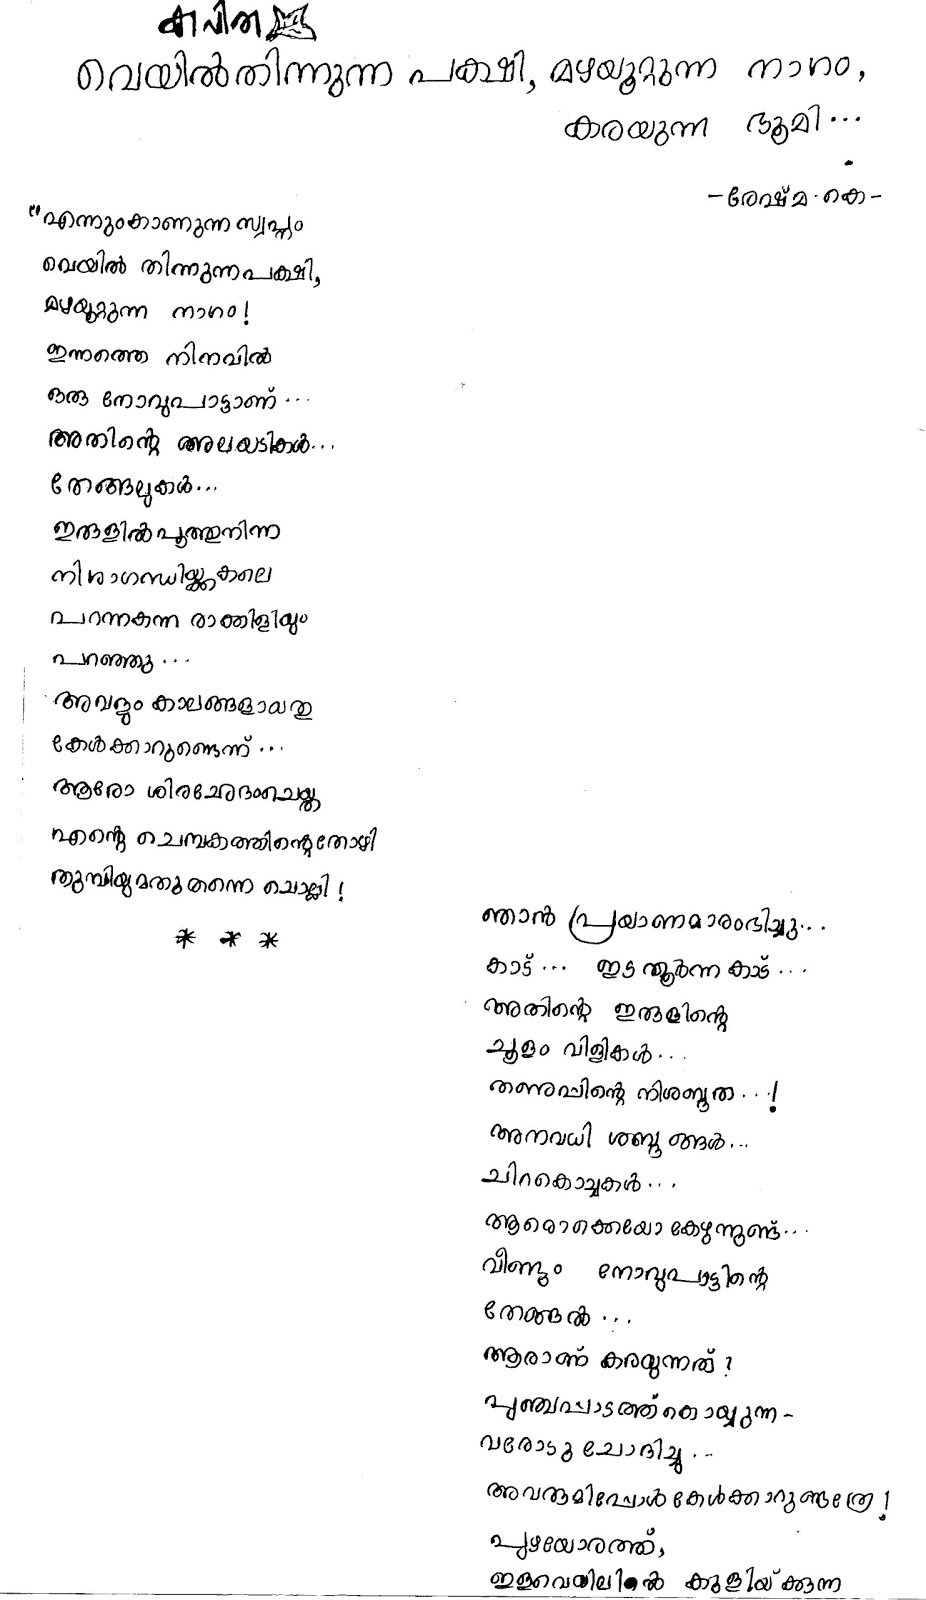 കവിത
വെയിൽതിന്നുന്ന പക്ഷി, മഴയൂറ്റുന്ന നാഗം,
കരയുന്ന ഭൂമി...
-രേഷ്മ.കെ-
"എന്നുംകാണുന്ന സ്വപ്നം
വെയിൽ തിന്നുന്നപക്ഷി,
മഴയൂറ്റുന്ന നാഗം!
ഇന്നത്തെ നിനവിൽ
ഒരു നോവുപാട്ടാണ്...
അതിന്റെ അലയടികൾ...
തേങ്ങലുകൾ...
ഇരുളിൽപൂത്തുനിന്ന
നിശാഗന്ധിയ്ക്കകലെ
പറന്നകന്ന രാക്കിളിയും
പറഞ്ഞു...
അവളും കാലങ്ങളായതു
കേൾക്കാറുണ്ടെന്ന്...
ആരോ ശിരഛേദംചെയ്ത
എന്റെ ചെമ്പകത്തിന്റെതോഴി
തുമ്പിയുമതുതന്നെ ചൊല്ലി!
* * *
ഞാൻ പ്രയാണമാരംഭിച്ചു...
കാട്... ഇടതൂർന്ന കാട്...
അതിന്റെ ഇരുളിന്റെ
ചൂളം വിളികൾ...
തണുപ്പിന്റെ നിശബ്ദത...!
അനവധി ശബ്ദങ്ങൾ...
ചിറകൊച്ചകൾ...
ആരൊക്കെയോ കേഴുന്നുണ്ട്...
വീണ്ടും നോവുപാട്ടിന്റെ
തേങ്ങൽ...
ആരാണ് കരയുന്നത്?
പുഞ്ചപ്പാടത്ത്കൊയ്യുന്ന-
വരോടു ചോദിച്ചു..
അവരുമിപ്പോൾകേൾക്കാറുണ്ടത്രേ!
പുഴയോരത്ത്,
ഇളവെയിലിൽ കുളിയ്ക്കുന്ന